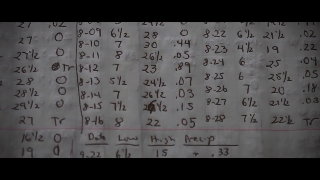 27 .02 8-09 6½ 28 0 8-22 6½ 21½ .02
27 0 8-10 7 30 .44 8-23 4½ 19 .22
27½ 0 8-11 8 27 .05 8-24 6 25 .04
26½ Tr 8-12 7 23 .89 8-25 6
28 0 8-13 5½ 24½ .17 28½ .05
28½ 0 8-14 7 26½ .03 8-26 7 20 .18
29½ 0 8-15 7½ .15 8-27 6½ 21½ .03
27 Tr 8-16 8 22 .05 8-28 7½ 22½ Tr
16½ 0 Date Low High Precip
19 0 8-22 6½ 15 .33